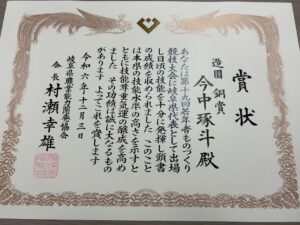 賞状
造園 銅賞
今中琢斗殿
あなたは第十九回若年者ものづくり
競技大会に岐阜県代表として出場
し日頃の技能を十分に発揮し頭書
の成績を収められました このこと
は本県の技能水準の高さを示すと
ともに技能尊重気運の醸成を高め
ました その功績は誠に大なるもの
があります よってこれを賞します
令和六年十二月三日
岐阜県職業能力開発協会
会長 村瀬幸雄